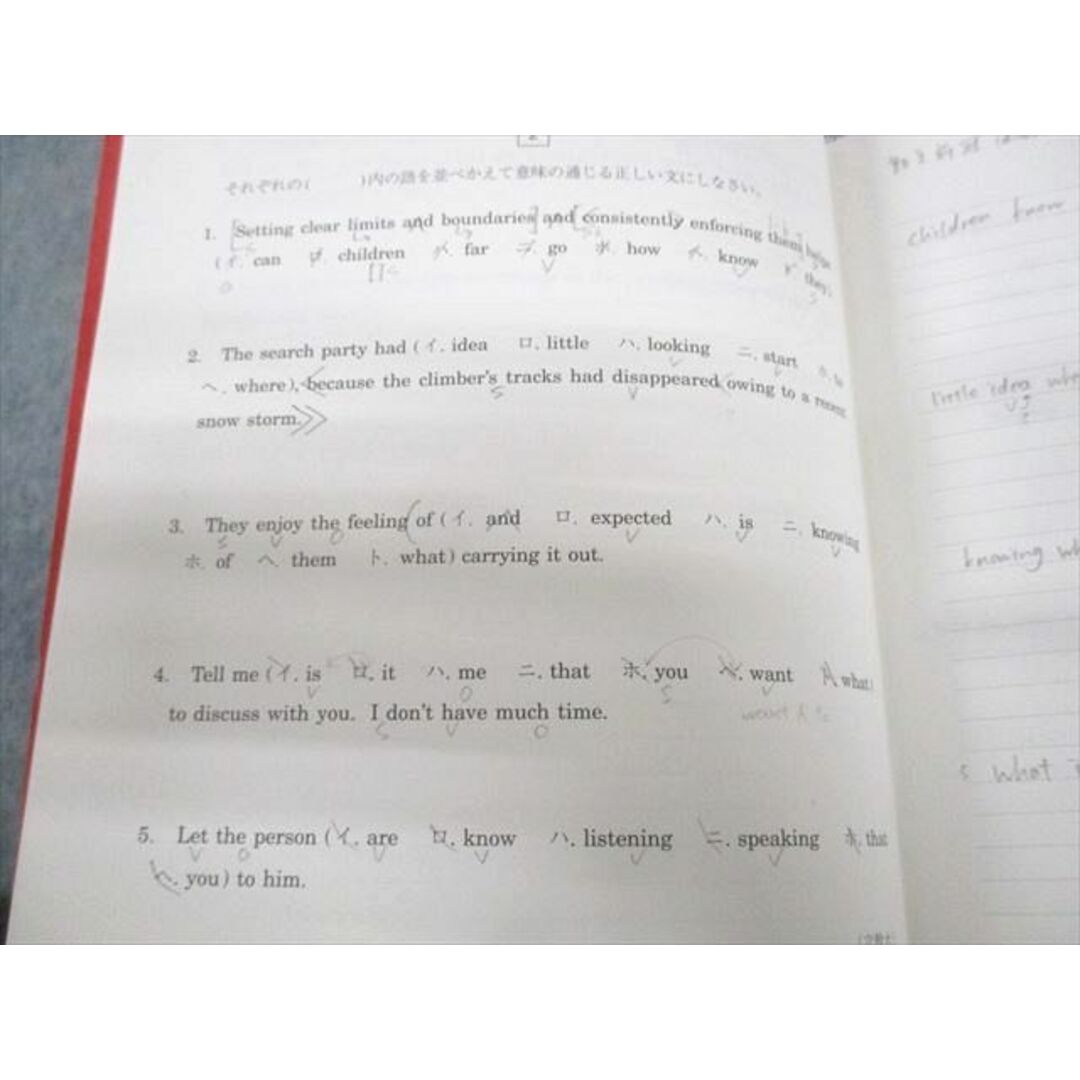 それぞれの( )内の語を並べかえて意味の通じる正しい文にしなさい。
1. Setting clear limits and boundaries and consistently enforcing them helps
(イ. can ロ. children ハ. far ニ. go ホ. how ヘ. know ト. they)
2. The search party had (イ. idea ロ. little ハ. looking ニ. start ホ. to
ヘ. where), because the climber's tracks had disappeared owing to a recent
snow storm.
3. They enjoy the feeling of (イ. and ロ. expected ハ. is ニ. knowing
ホ. of ヘ. them ト. what) carrying it out.
4. Tell me (イ. is ロ. it ハ. me ニ. that ホ. you ヘ. want ト. what)
to discuss with you. I don't have much time.
want A to
5. Let the person (イ. are ロ. know ハ. listening ニ. speaking ホ. that
ヘ. you) to him.
children know
little idea whe
knowing wh
s what i